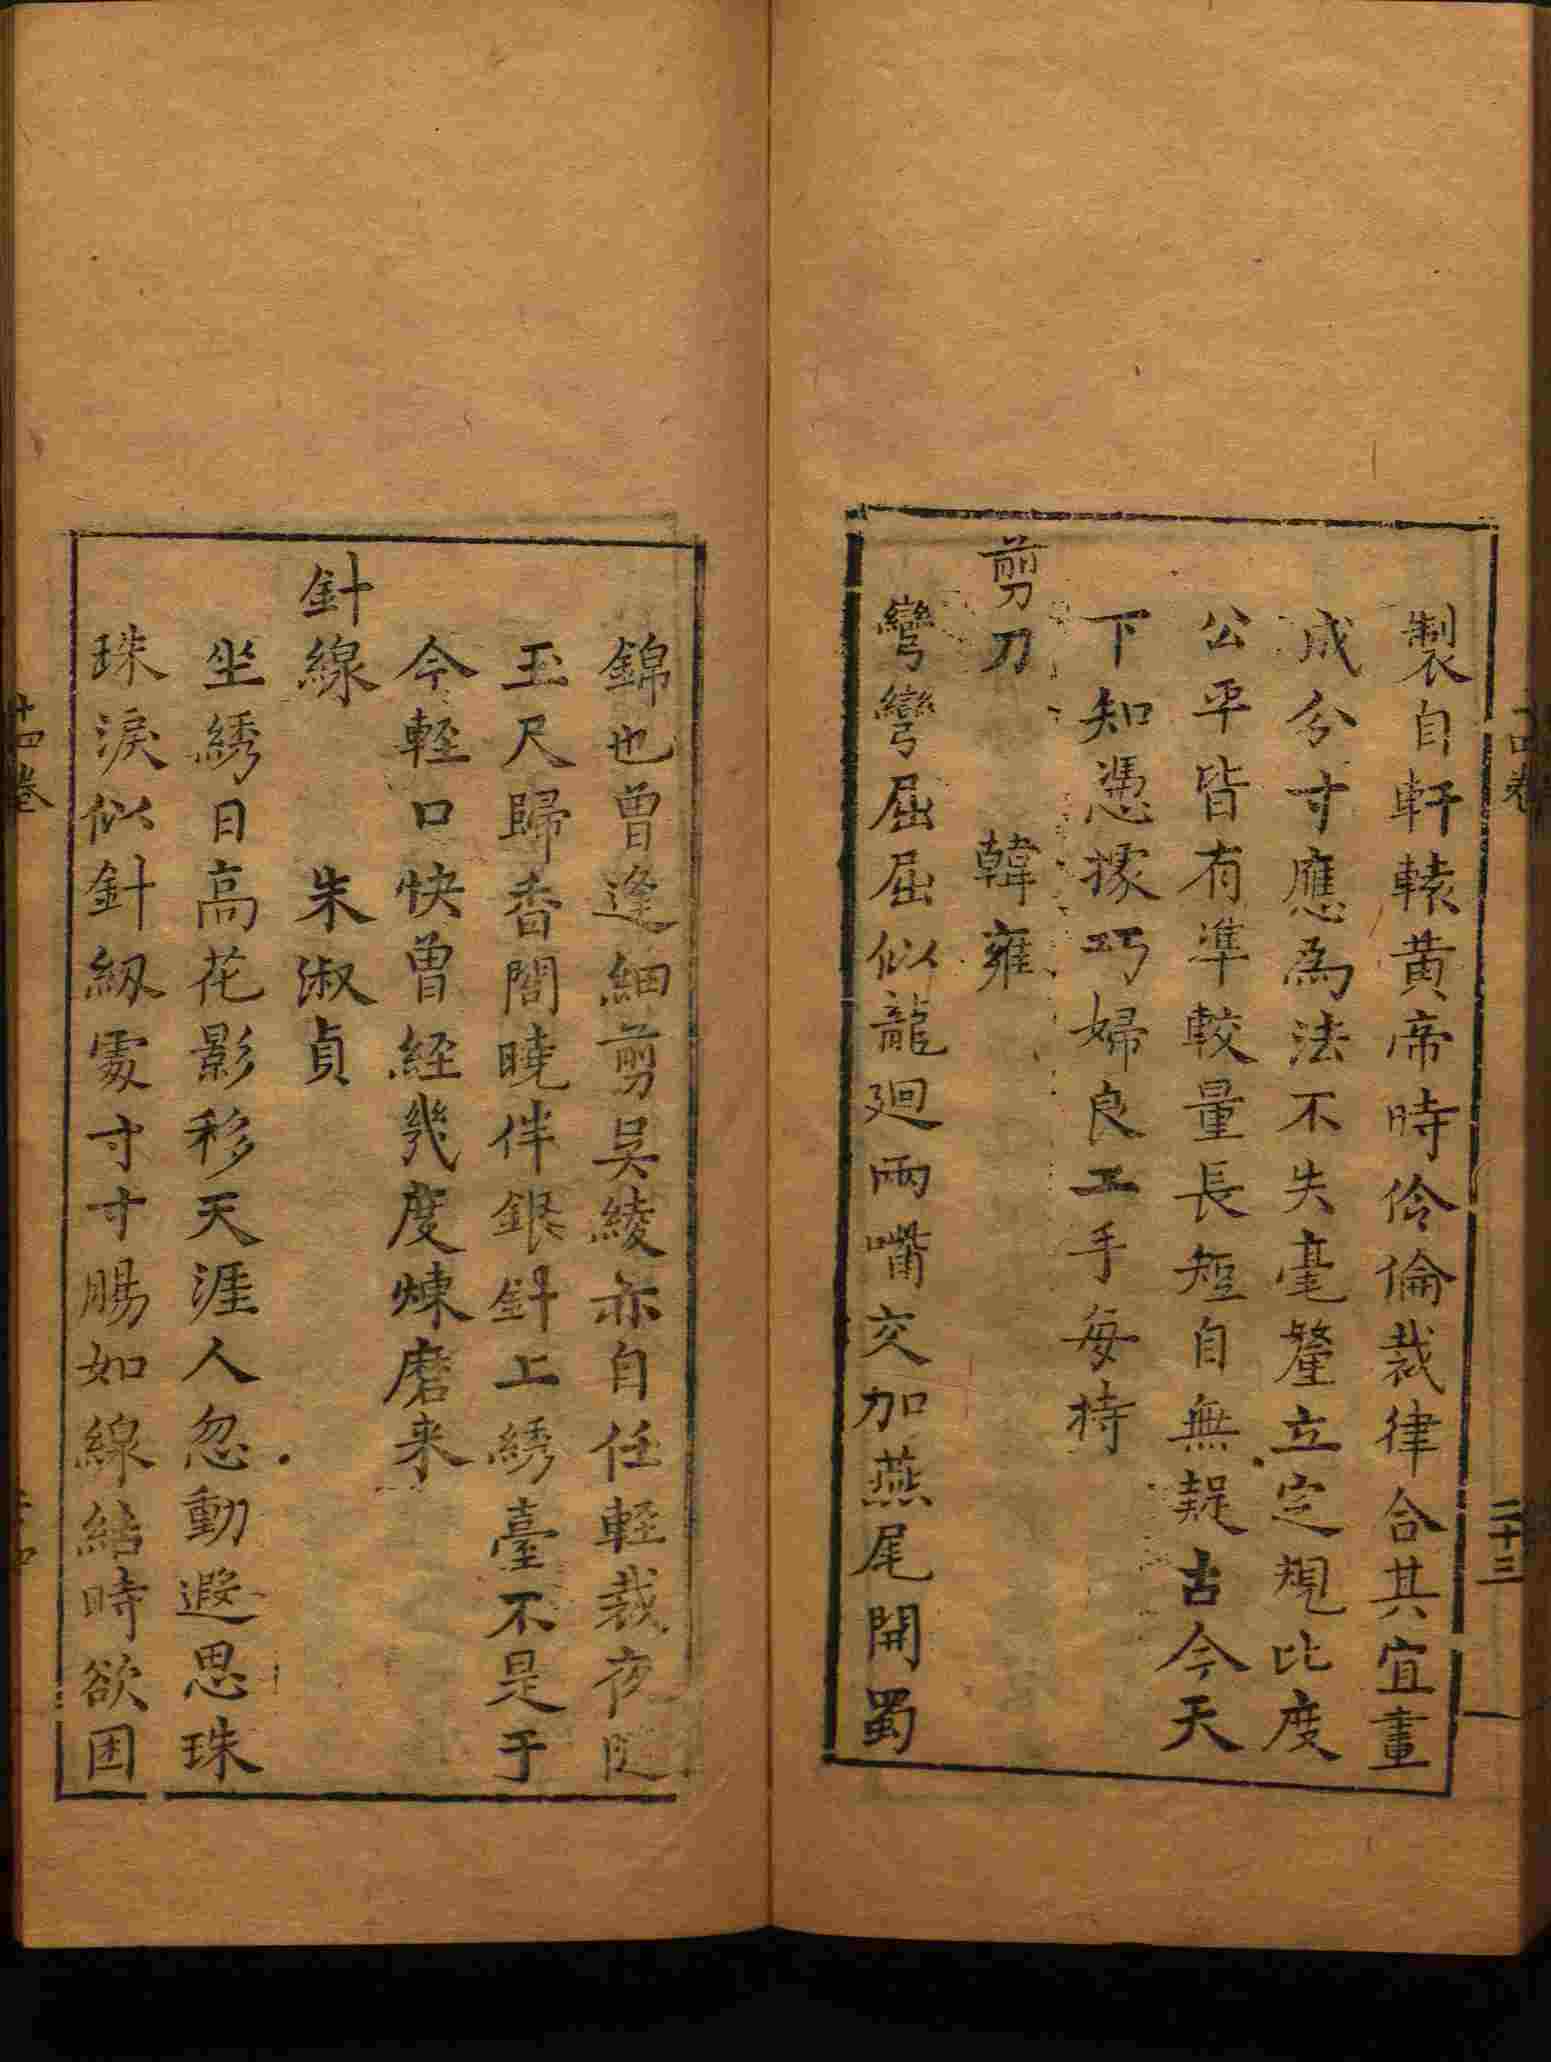 製自軒轅黄帝時伶倫裁律合其宜畫
成分寸應為法不失毫釐立定規比度
公平皆有準較量長短自無疑古今天
下知憑據巧婦良工手每持
剪刀 韓雍
彎彎屈屈似龍廻兩嘴交加燕尾開蜀
二十三
錦也曾逢細剪吳綾亦自任輕裁夜随
玉尺歸香閣曉伴銀針上綉臺不是于
今輕口快曾経幾度煉磨来
針線 朱淑貞
坐綉日高花影移天涯人忽動遐思珠
珠淚似針紉處寸寸腸如線結時欲困
十四卷